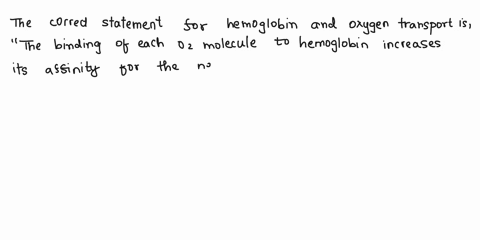 The corred statement for hemoglobin and oxygen transport is,
"The binding of each O₂ molecule to hemoglobin increases
its assinity for the no